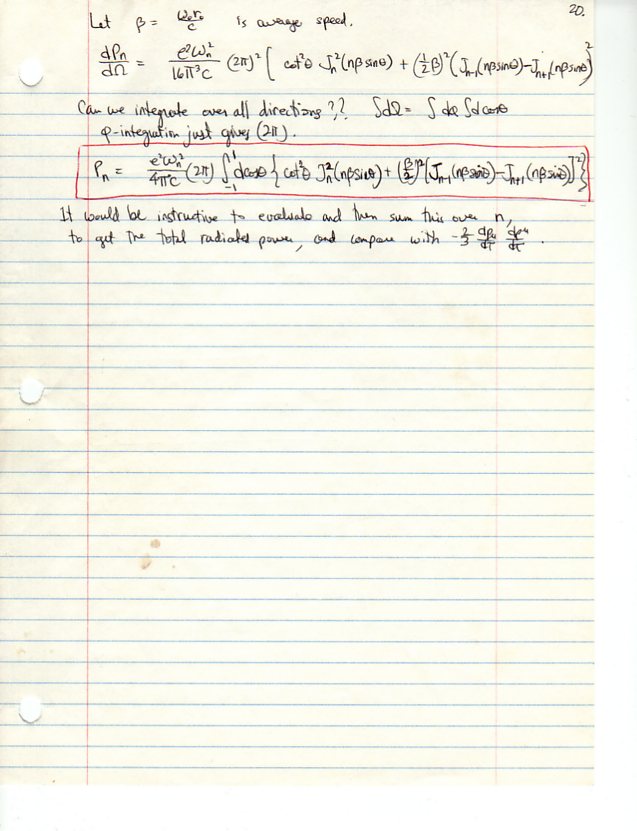 20.
Let β = ω₀r₀/c is average speed.
dPn/dΩ = e²ωn²/16π³c (2π)² [ cot²θ Jn²(nβ sinθ) + (½β)² (Jn-1(nβ sinθ) - Jn+1(nβ sinθ)²
Can we integrate over all directions?? ∫dΩ = ∫dφ ∫dcosθ
φ-integration just gives (2π).
Pn = e²ωn²/4πc (2π) ∫₋₁¹ dcosθ { cot²θ Jn²(nβ sinθ) + (β/2)² [Jn-1(nβ sinθ) - Jn+1(nβ sinθ)]² }
It would be instructive to evaluate and then sum this over n,
to get the total radiated power, and compare with -2/3 dpμ/dτ dpμ/dτ .